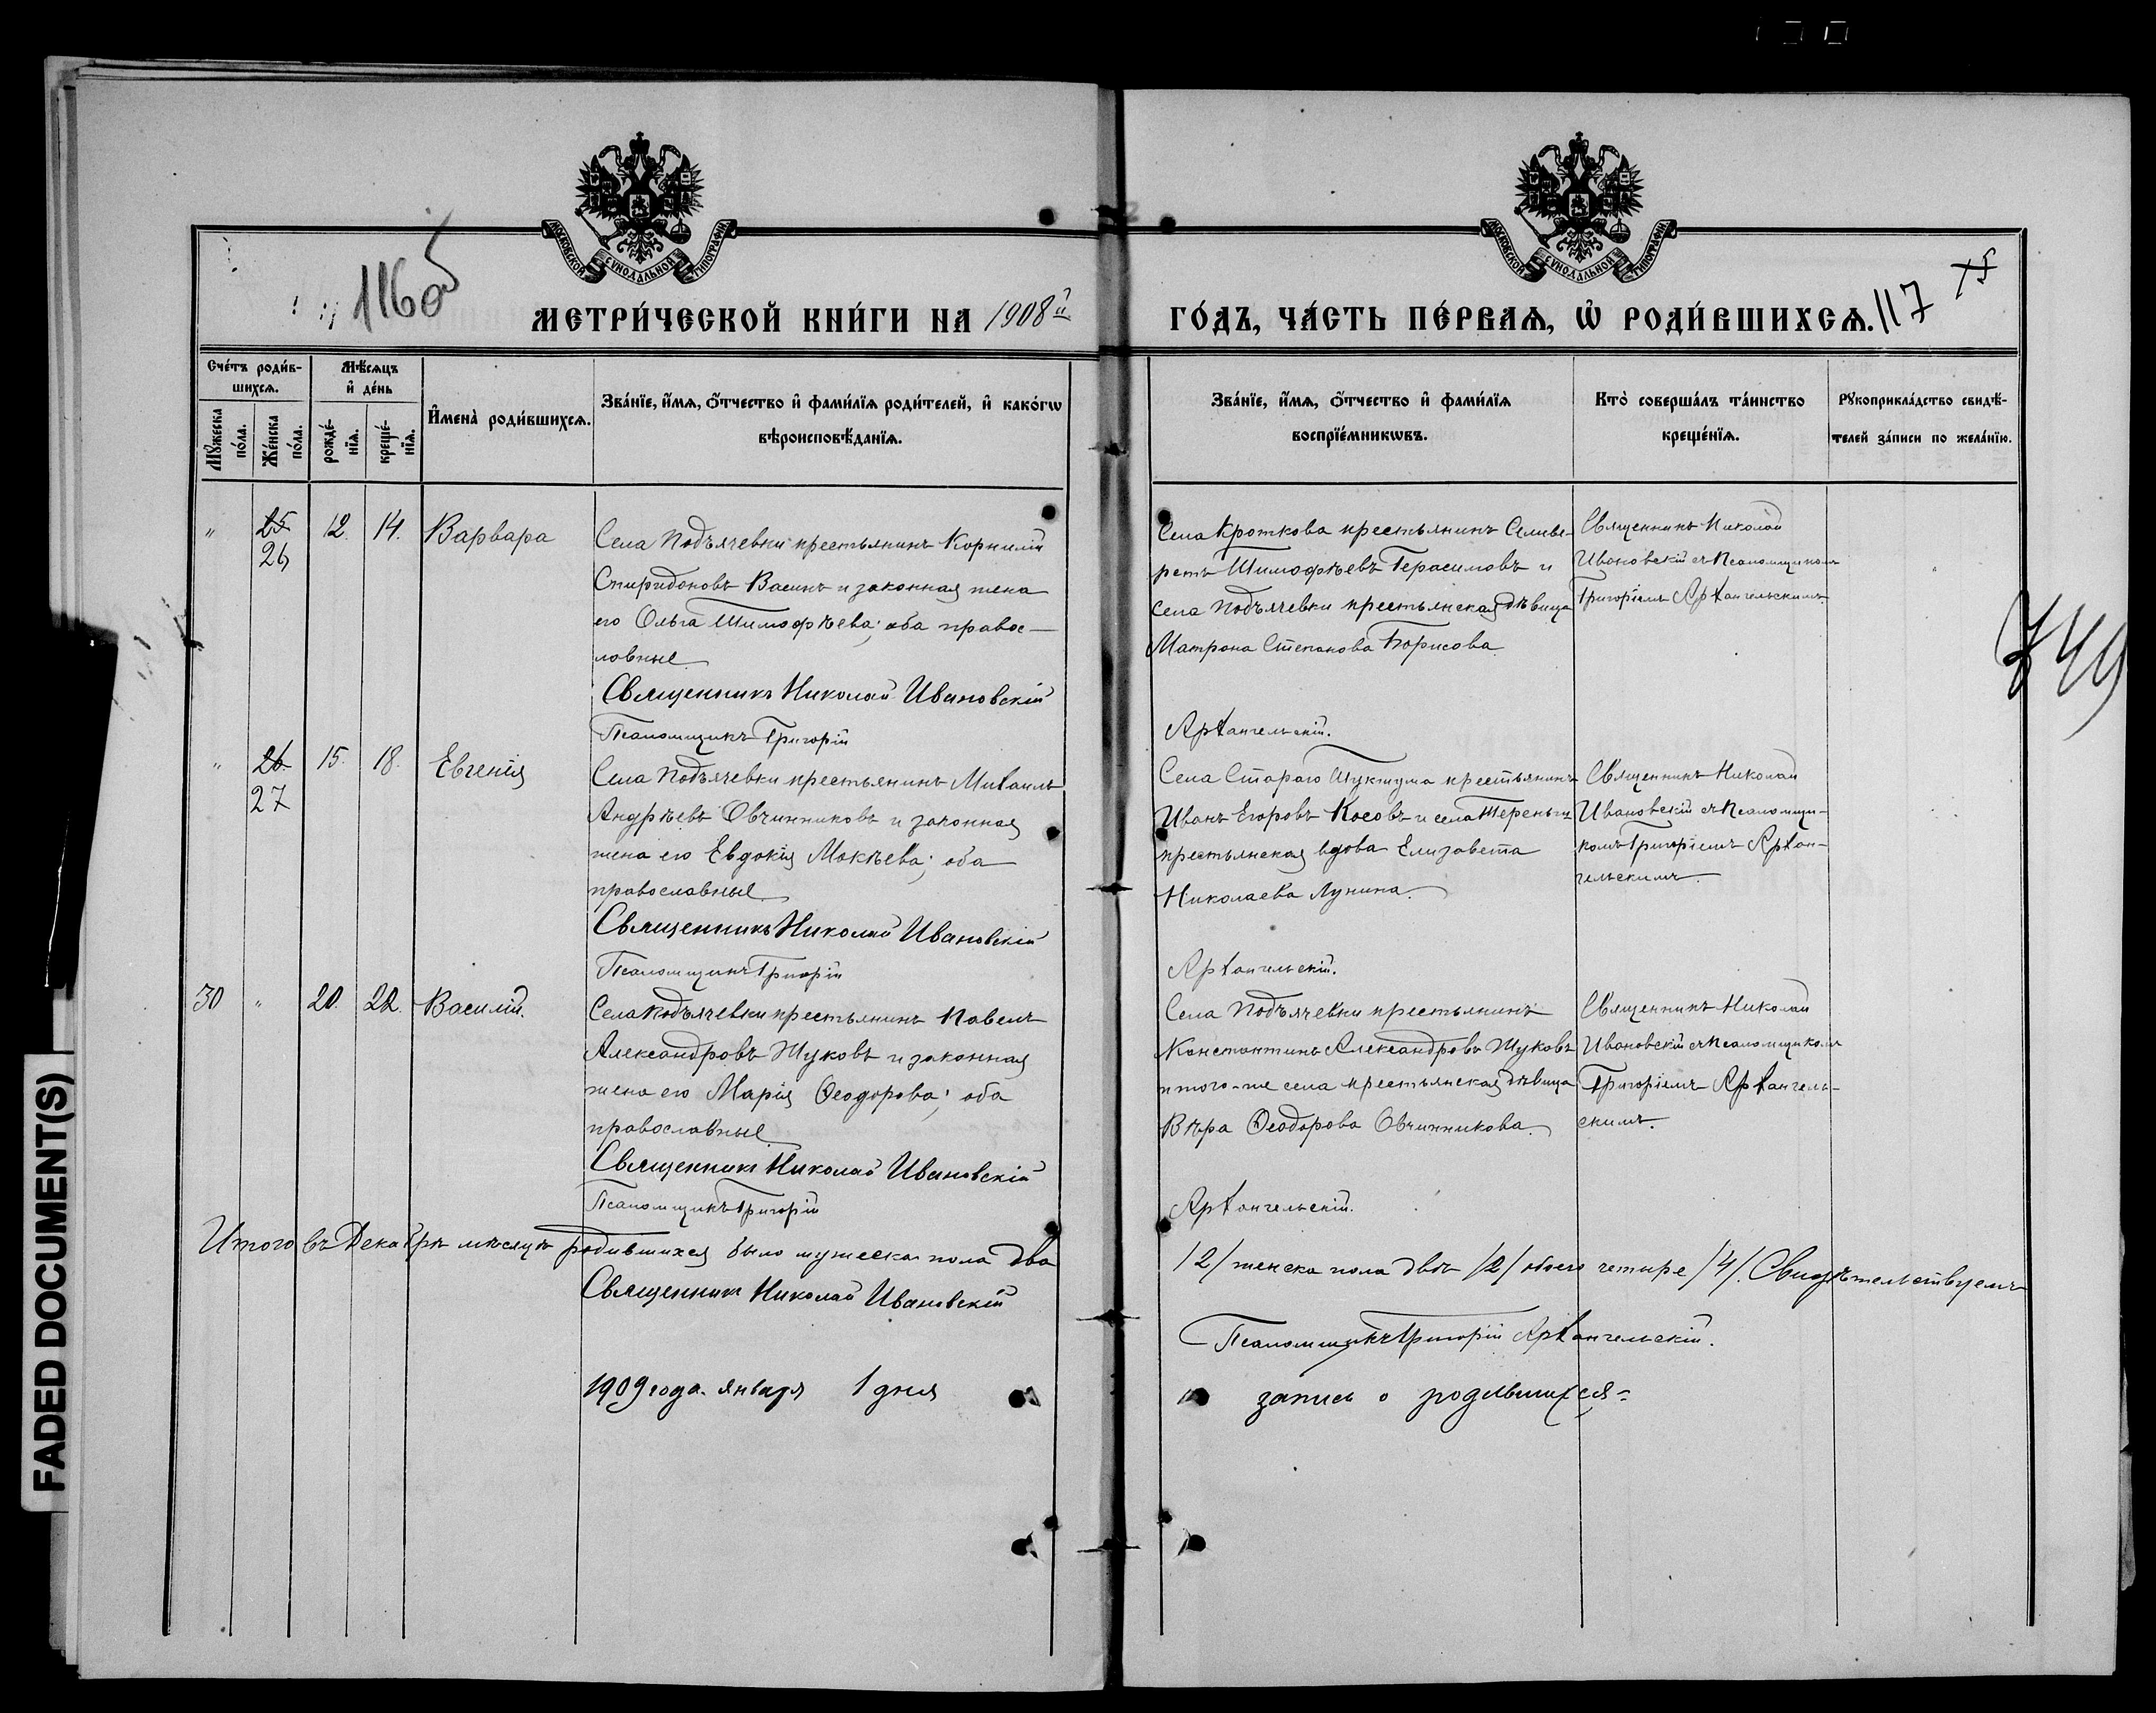 FADED DOCUMENT(S)
МОСКОВСКОЙ СѴНОДАЛЬНОЙ ТИПОГРАФІИ
МОСКОВСКОЙ СѴНОДАЛЬНОЙ ТИПОГРАФІИ
116об
МЕТРИ́ЧЕСКОЙ КНИ́ГИ НА 1908й
ГО́ДЪ, ЧА́СТЬ ПЕ́РВАѦ, Ѡ҆ РОДИ́ВШИХСѦ. 117 75
Сче́тъ роди́в-
шихсѧ.
Мѣ́сѧцъ
и҆ де́нь
Мꙋ́жеска
по́ла.
Же́нска
по́ла.
рожде́-
нїѧ.
креще́-
нїѧ.
И҆мена̀ роди́вшихсѧ.
Зва́нїе, и҆́мѧ, ѻ҆́тчество и҆ фами́лїѧ роди́телей, и҆ како́гѡ
вѣроисповѣ́данїѧ.
Зва́нїе, и҆́мѧ, ѻ҆́тчество и҆ фами́лїѧ
воспрїе́мникѡвъ.
Кто̀ соверша́лъ та́инство
креще́нїѧ.
Рꙋкоприкла́дство свидѣ́-
телей за́писи по жела́нїю.
" 25 12. 14. Варвара
26
Села Подъячевки крестьянинъ Корнилій
Спиридоновъ Васинъ и законная жена
его Ольга Тимофѣева; оба правос-
лавные
Священникъ Николай Ивановскій
Псаломщикъ Григорій
Села Кроткова крестьянинъ Селиве-
рстъ Тимофѣевъ Герасимовъ и
села Подъячевки крестьянская дѣвица
Матрона Степанова Борисова
Архангельскій.
Священникъ Николай
Ивановскій съ Псаломщикомъ
Григоріемъ Архангельскимъ.
749
" 26. 15. 18. Евгенія
27
Села Подъячевки крестьянинъ Михаилъ
Андрѣевъ Овчинниковъ и законная
жена его Евдокія Мокѣева; оба
православные
Священникъ Николай Ивановскій
Псаломщикъ Григорій
Села Стараго Тукшума крестьянинъ
Иванъ Егоровъ Косовъ и села Тереньги
крестьянская вдова Елизавета
Николаева Лунина.
Архангельскій.
Священникъ Николай
Ивановскій съ Псаломщи-
комъ Григоріемъ Архан-
гельскимъ.
30 " 20. 22. Василій.
Села Подъячевки крестьянинъ Павелъ
Александровъ Жуковъ и законная
жена его Марія Ѳеодорова; оба
православные.
Священникъ Николай Ивановскій
Псаломщикъ Григорій
Села Подъячевки крестьянинъ
Константинъ Александровъ Жуковъ
и того-же села крестьянская дѣвица
Вѣра Ѳеодорова Овчинникова.
Архангельскій.
Священникъ Николай
Ивановскій съ Псаломщикомъ
Григоріемъ Архангель-
скимъ.
Итого въ Декабрѣ мѣсяцѣ родившихся было мужеска пола два
/2/ женска пола двѣ /2/ обоего четыре /4/. Свидѣтельствуемъ
Священникъ Николай Ивановскій
Псаломщикъ Григорій Архангельскій.
1909 года. января 1 дня
запись о родившихся